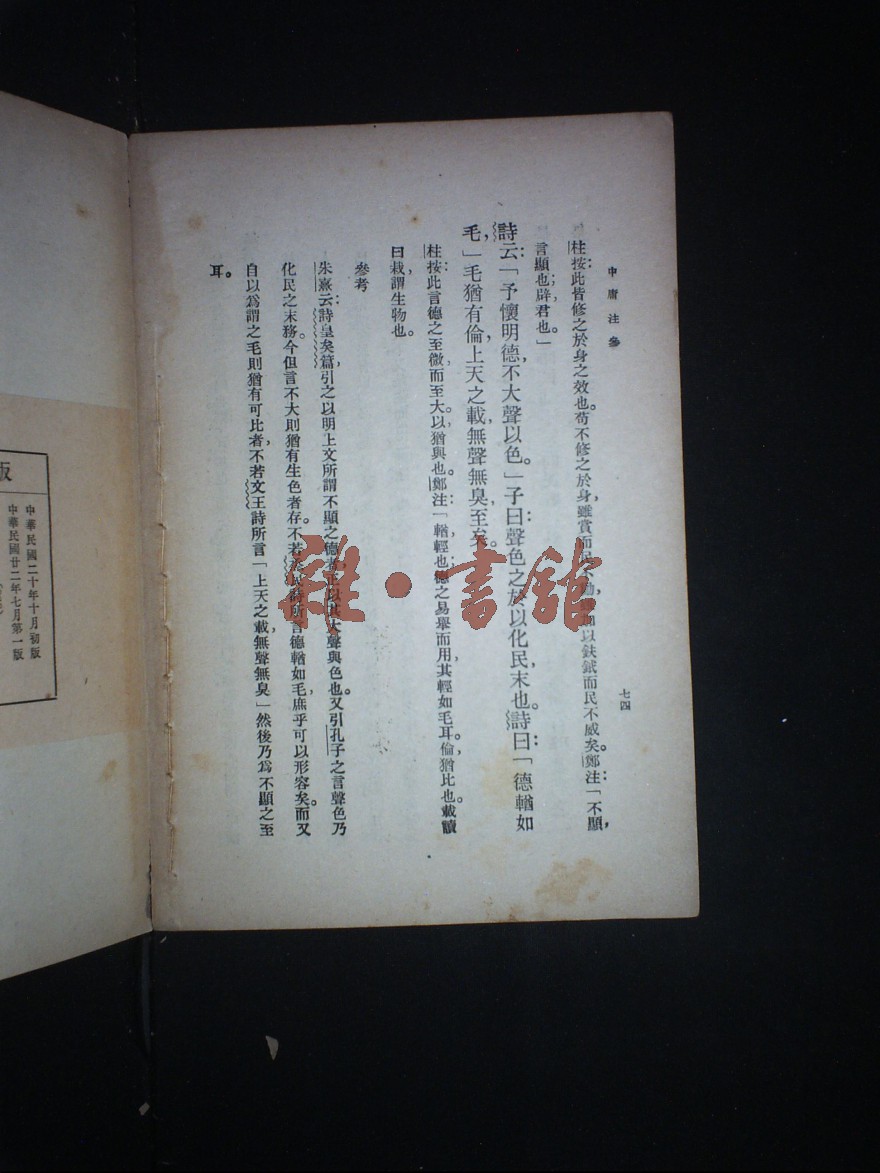 中庸注參
七四
柱按：此皆修之於身之效也。苟不修之於身，雖賞而民不以鈇鉞而民不威矣。鄭注：「不顯，
言顯也；辟，君也。」
詩云：「予懷明德，不大聲以色。」子曰：聲色之於以化民，末也。詩曰：「德輶如
毛，」毛猶有倫，上天之載，無聲無臭，至矣。
柱按：此言德之至微而至大。以猶與也。鄭注：「輶，輕也；德之易舉而用，其輕如毛耳。倫，猶比也。載讀
曰栽，謂生物也。
參考
朱熹云：詩皇矣篇，引之以明上文所謂不顯之德者，正以其不大聲與色也。又引孔子之言，聲色乃
化民之末務。今但言不大則猶有生色者存。不若烝民詩所言德輶如毛，庶乎可以形容矣。而又
自以為謂之毛，則猶有可比者，不若文王詩所言「上天之載，無聲無臭」然後乃為不顯之至
耳。
版
中華民國二十年十月初版
中華民國廿二年七月第一版
雜·書館